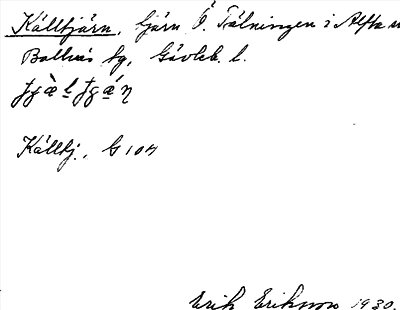 Källtjärn, tjärn Ö. Tälningen i Alfta o
Bollnäs sg, Gävleb. l.
Källtj., G 104
Erik Eriksson 1930.